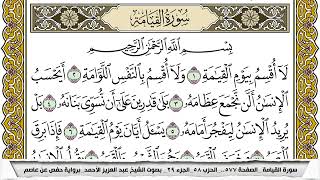 سُورَةُ الْقِيَامَةِ
بِسْمِ اللَّهِ الرَّحْمَٰنِ الرَّحِيمِ
لَا أُقْسِمُ بِيَوْمِ الْقِيَامَةِ ١ وَلَا أُقْسِمُ بِالنَّفْسِ اللَّوَّامَةِ ٢ أَيَحْسَبُ
الْإِنسَانُ أَلَّن نَّجْمَعَ عِظَامَهُ ٣ بَلَىٰ قَادِرِينَ عَلَىٰ أَن نُّسَوِّيَ بَنَانَهُ ٤ بَلْ
يُرِيدُ الْإِنسَانُ لِيَفْجُرَ أَمَامَهُ ٥ يَسْأَلُ أَيَّانَ يَوْمُ الْقِيَامَةِ ٦ فَإِذَا بَرِقَ
سورة القيامة الصفحة ٥٧٧ الحزب ٥٨ الجزء ٢٩ بصوت الشيخ عبد العزيز الأحمد برواية حفص عن عاصم